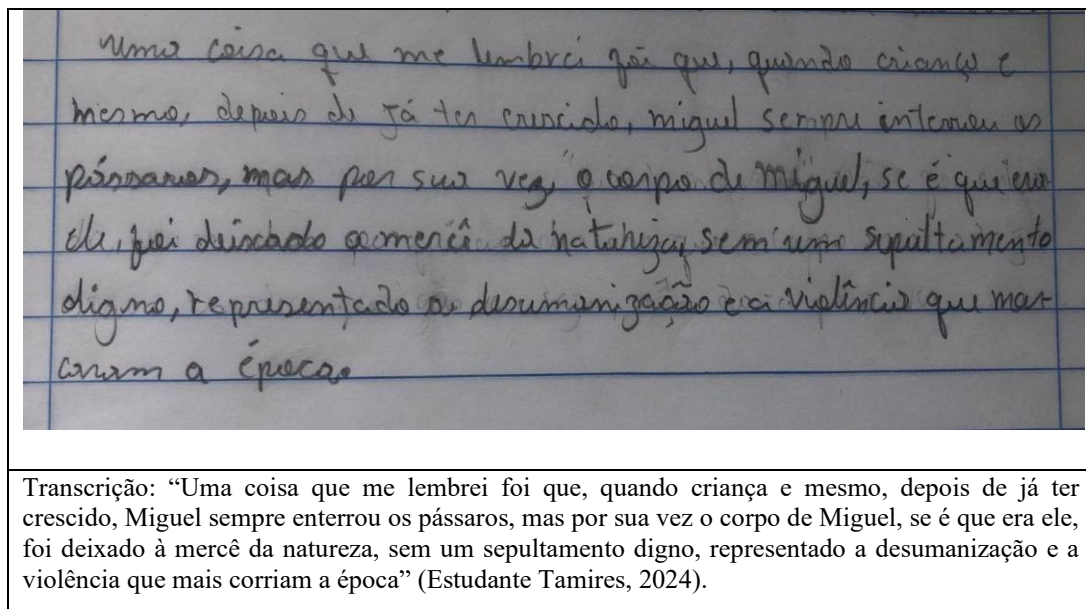 uma coisa que me lembrei foi que, quando criança e
mesmo, depois de já ter crescido, miguel sempre enterrou os
pássaros, mas por sua vez, o corpo de miguel, se é que era
ele, foi deixado a mercê da natureza, sem um sepultamento
digno, representado a desumanização e a violência que mar-
caram a época.
Transcrição: “Uma coisa que me lembrei foi que, quando criança e mesmo, depois de já ter
crescido, Miguel sempre enterrou os pássaros, mas por sua vez o corpo de Miguel, se é que era ele,
foi deixado à mercê da natureza, sem um sepultamento digno, representado a desumanização e a
violência que mais corriam a época” (Estudante Tamires, 2024).